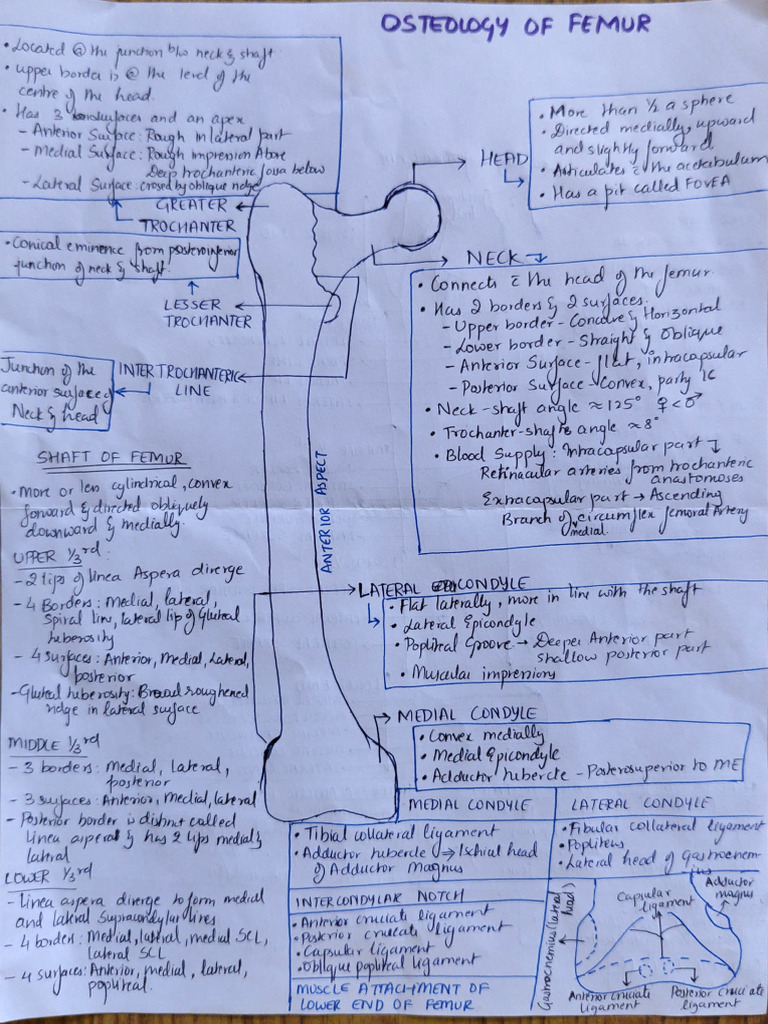 OSTEOLOGY OF FEMUR
• Located @ the junction b/w neck & shaft
• upper border is @ the level of the
centre of the head.
• Has 3 surfaces and an apex
- Anterior Surface: Rough in lateral part
- Medial Surface: Rough impression Above
Deep trochanteric fossa below
- Lateral Surface: crossed by oblique ridge
GREATER
TROCHANTER
• Conical eminence from posteroinferior
junction of neck & shaft.
LESSER
TROCHANTER
Junction of the
anterior surface of
Neck & head
INTERTROCHANTERIC
LINE
HEAD
• More than 1/2 a sphere
• Directed medially, upward
and slightly forward
• Articulates c̄ the acetabulum
• Has a pit called FOVEA
NECK
• Connects c̄ the head of the femur
• Has 2 borders & 2 surfaces.
- Upper border - Concave & Horizontal
- Lower border - Straight & Oblique
- Anterior Surface - flat, intracapsular
- Posterior Surface - Convex, partly IC
• Neck-shaft angle ≈ 125° ♀<♂
• Trochanter-shaft angle ≈ 8°
• Blood Supply: Intracapsular part ↴
Retinacular arteries from trochanteric
anastomoses
Extracapsular part → Ascending
Branch of medial circumflex femoral Artery
SHAFT OF FEMUR
• More or less cylindrical, convex
forward & directed obliquely
downward & medially.
UPPER 1/3rd:
- 2 lips of linea Aspera diverge
- 4 Borders: Medial, lateral,
Spiral line, lateral lip of Gluteal
tuberosity
- 4 surfaces: Anterior, Medial, Lateral,
posterior
- Gluteal tuberosity: Broad roughened
ridge in lateral surface
MIDDLE 1/3rd
- 3 borders: Medial, lateral,
posterior
- 3 surfaces: Anterior, Medial, lateral
- Posterior border is distinct called
linea aspera & has 2 lips medial &
lateral
LOWER 1/3rd
- linea aspera diverge to form medial
and lateral supracondylar lines
- 4 borders: Medial, lateral, medial SCL,
lateral SCL
- 4 surfaces: Anterior, medial, lateral,
popliteal.
ANTERIOR ASPECT
LATERAL CONDYLE
• Flat laterally, more in line with the shaft
• Lateral Epicondyle
• Popliteal Groove → Deeper Anterior part
shallow posterior part
• Muscular impressions
MEDIAL CONDYLE
• Convex medially
• Medial Epicondyle
• Adductor tubercle - Posterosuperior to ME
MEDIAL CONDYLE
• Tibial collateral ligament
• Adductor tubercle ⇒ Ischial head
of Adductor Magnus
LATERAL CONDYLE
• Fibular collateral ligament
• Popliteus
• Lateral head of Gastrocnem-
ius
INTERCONDYLAR NOTCH
• Anterior cruciate ligament
• Posterior cruciate ligament
• Capsular ligament
• Oblique popliteal ligament
MUSCLE ATTACHMENT OF
LOWER END OF FEMUR
Gastrocnemius (lateral
head)
Capsular
ligament
Adductor
magnus
Anterior cruciate
ligament
Posterior cruciate
ligament